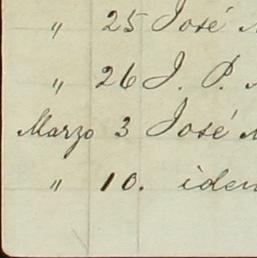 " 25 José
" 26 J. P.
Marzo 3 José
" 10. iden